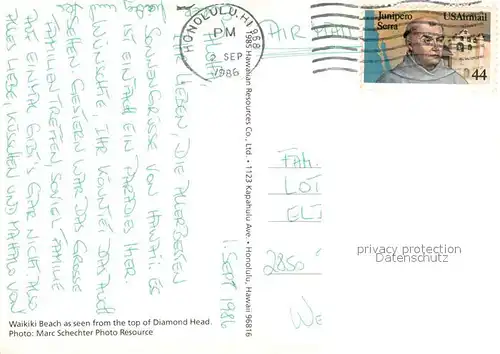 HONOLULU, HI 968
PM
SEP
1986
AIR MAIL
Junipero
Serra
USAirmail
44
1. SEPT 1986
ALOHA,
IHR LIEBEN, DIE ALLERBESTEN
SONNENGRÜSSE VON HAWAII. ES
IST EINFACH EIN PARADIES HIER.
WÜNSCHTE, IHR KÖNNTET DAS AUCH
SEHEN. GESTERN WAR DAS GROSSE
FAMILIENTREFFEN, SOVIEL FAMILIE
AUF EINMAL GIBT'S GAR NICHT. ALSO
ALLES LIEBE, KÜSSCHEN UND MAHALO VON
1985 Hawaiian Resources Co., Ltd. • 1123 Kapahulu Ave. • Honolulu, Hawaii 96816
FAM.
LOT
ELT
2850
WE
privacy protection
Datenschutz
Waikiki Beach as seen from the top of Diamond Head.
Photo: Marc Schechter Photo Resource